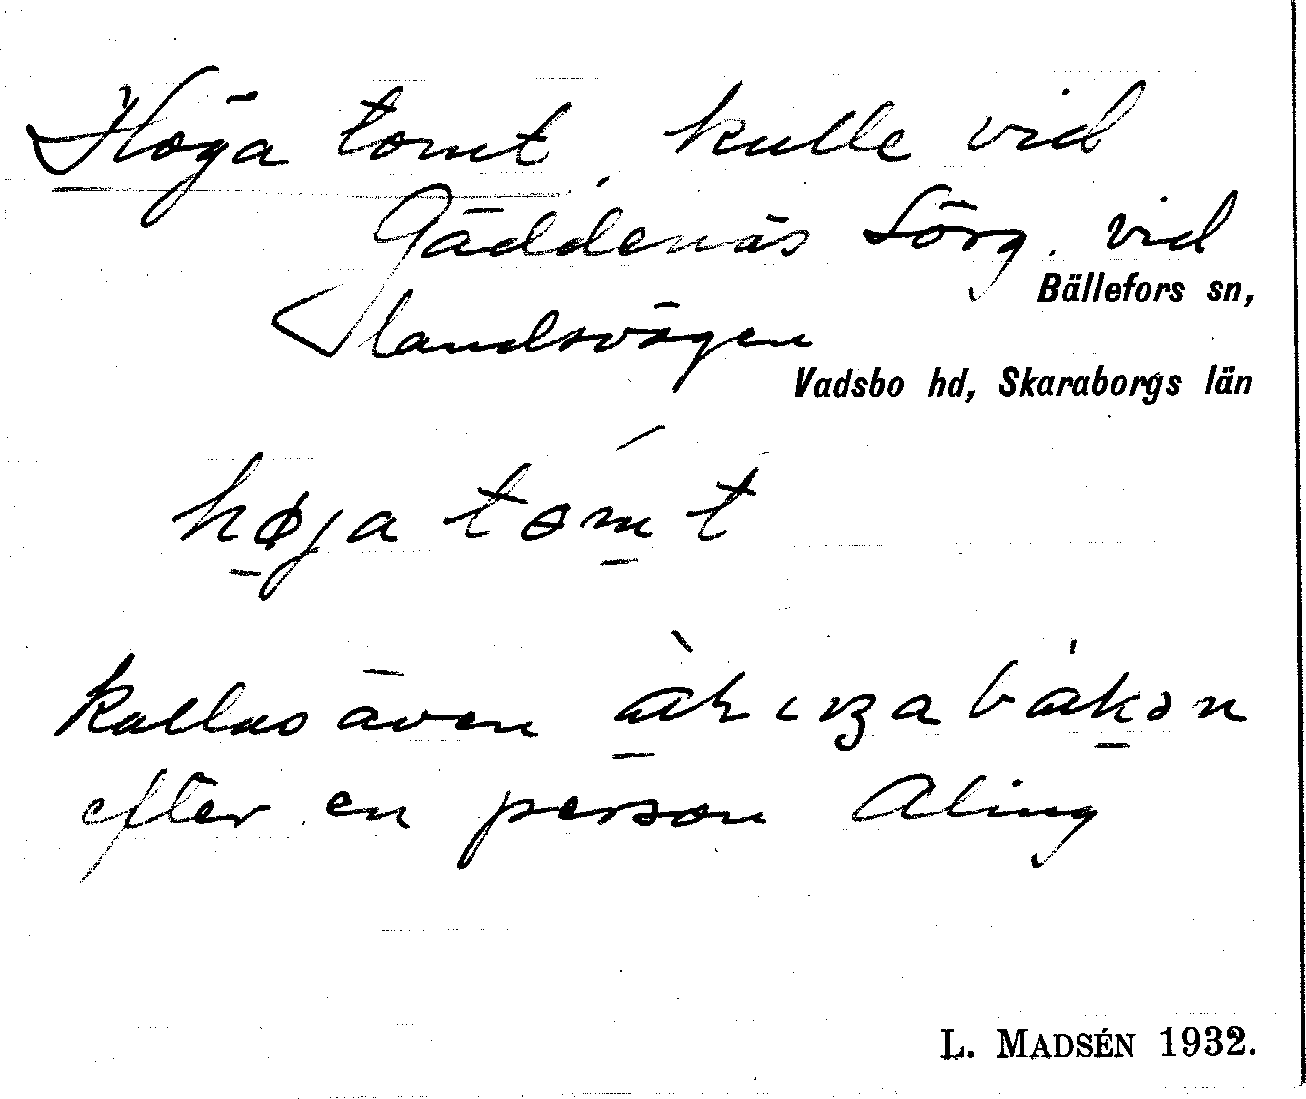 Höga tomt, kulle vid
Gäddenäs Sörg. vid
Bällefors sn,
landsvägen
Vadsbo hd, Skaraborgs län
høja tomt
kallas även
efter en person Aling
L. MADSÉN 1932.